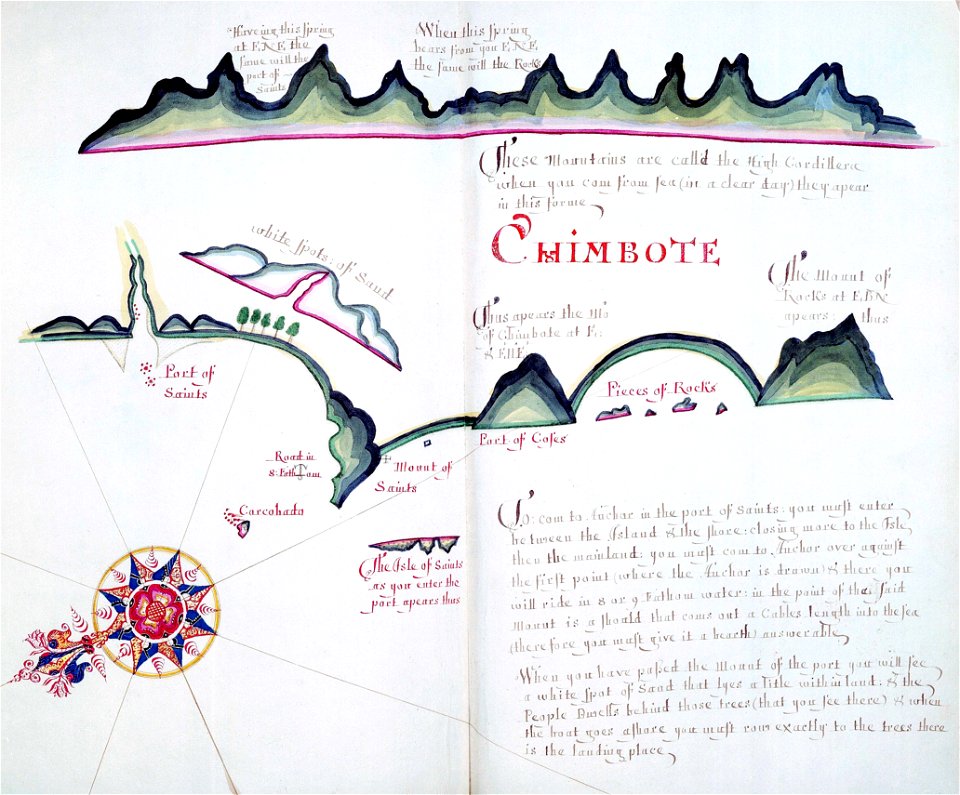 Haveing this spring
at E.N.E. the
same will the
port of
Saints
When this spring
bears from you E.N.E.
the same will the Rocks
These Mountains are calld the High Cordillera
when you com from sea (in a clear day) they apear
in this forme
CHIMBOTE
white spots: of Sand
Thus apears the Mo
of Chimbote at E:
& ENE
The Mount of
Rocks at E.B.N.
apears: thus
Port of
Saints
Pieces of Rocks
Port of Coses
Road in
8: Fathom
Mount of
Saints
Carcohado
The Isle of Saints
as you enter the
port apears thus
To: com to Anchor in the port of Saints: you must enter
between the Island & the shore: closing more to the Isle
then the mainland: you must com to Anchor over against
the first point (where the Anchor is drawn) & there you
will ride in 8 or 9 Fathom water: in the point of the said
Mount is a shoald that coms out a Cables length into the sea
(therefore you must give it a bearth) answerable
When you have passed the Mount of the port you will see
a white spot of Sand that lyes a litle within land: & the
People Dwells behind those trees (that you see there) & when
the boat goes ashore you must row exactly to the trees there
is the landing place